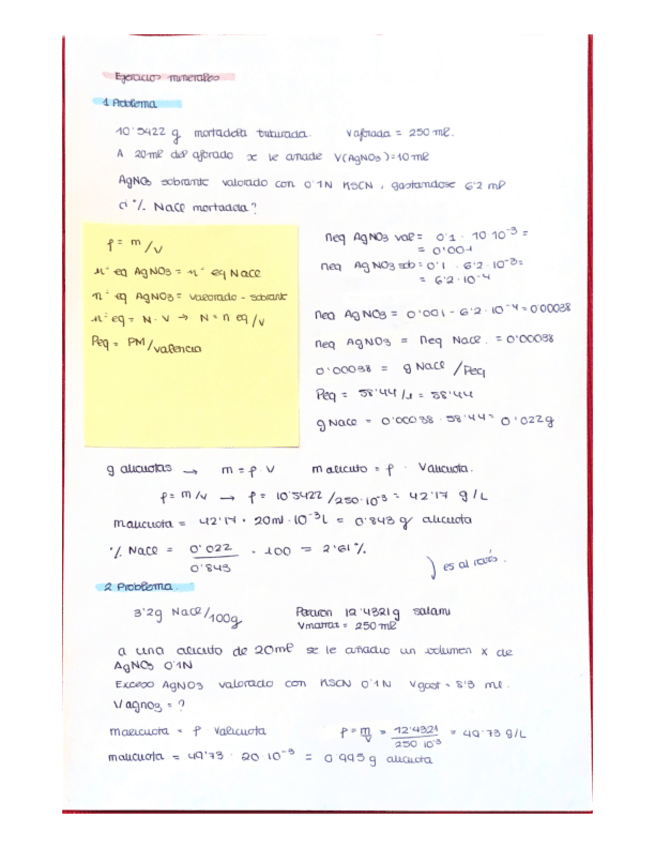 Ejercicios minerales
1 Problema
10'5422 g mortadela triturada. V aforada = 250 ml.
A 20ml del aforado se le añade V(AgNO3)=10 ml
AgNO3 sobrante valorado con 0'1N KSCN, gastandose 6'2 ml
¿% NaCl mortadela?
ρ = m/v
nº eq AgNO3 = nº eq NaCl
nº eq AgNO3 = valorado - sobrante
nº eq = N · V → N = n eq/v
Peq = PM/valencia
neq AgNO3 val = 0'1 · 10 10⁻³ =
= 0'001
neq AgNO3 sob = 0'1 · 6'2 · 10⁻³ =
= 6'2 · 10⁻⁴
neq AgNO3 = 0'001 - 6'2 · 10⁻⁴ = 0'00038
neq AgNO3 = neq NaCl = 0'00038
0'00038 = g NaCl / Peq
Peq = 58'44/1 = 58'44
g NaCl = 0'00038 · 58'44 = 0'022g
g alicuotas → m = ρ · V m alicuto = ρ · Valicuota.
ρ = m/v → ρ = 10'5422/250·10⁻³ = 42'17 g/L
malicuota = 42'17 · 20ml·10⁻³L = 0'843 g alicuota
% NaCl = 0'022 / 0'843 · 100 = 2'61%
) es al revés.
2 Problema.
3'2g NaCl/100g Pesaron 12'4321g salami
Vmatraz = 250 ml
a una alicuto de 20ml se le añadio un volumen x de
AgNO3 0'1N
Exceso AgNO3 valorado con KSCN 0'1N Vgast = 5'3 ml.
V AgNO3 = ?
malicuota = ρ Valicuota ρ = m/v = 12'4321 / 250 10⁻³ = 49'73 g/L
malicuota = 49'73 · 20·10⁻³ = 0'995 g alicuota